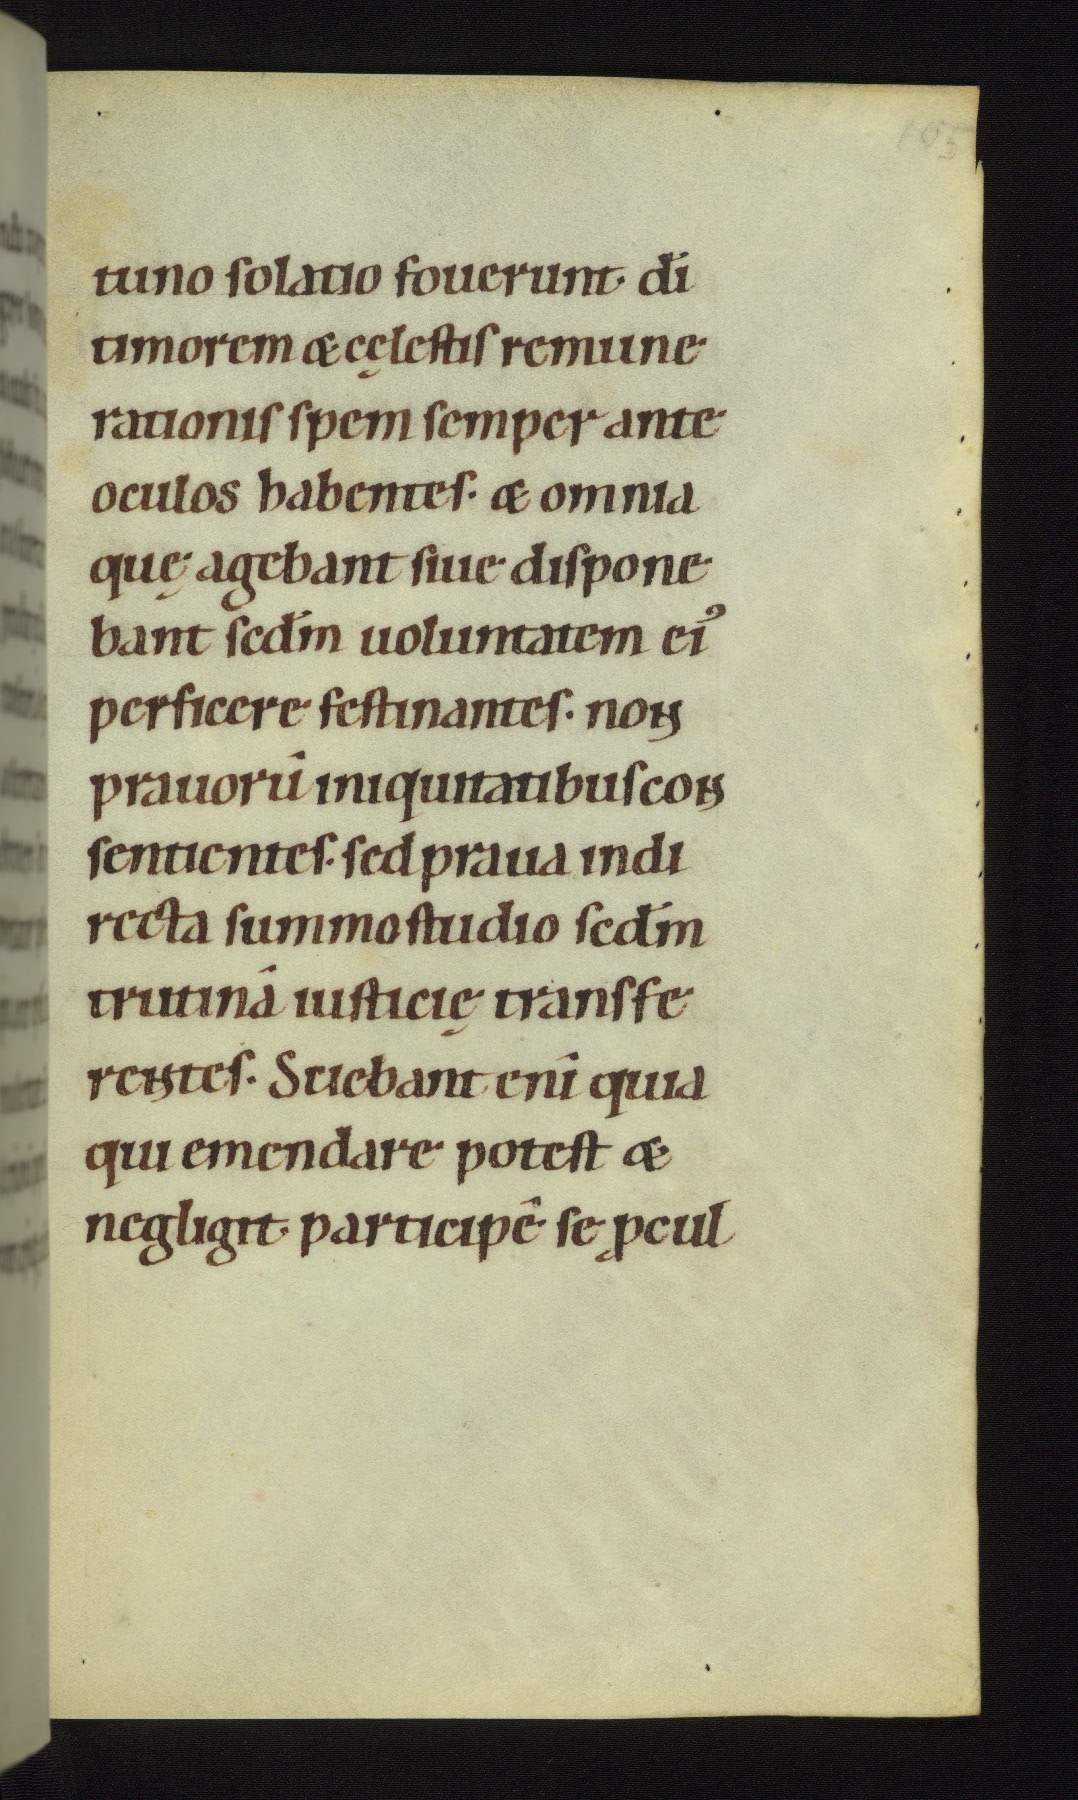 105
tuno solatio fouerunt· di̅
timorem & cęlestis remune
rationis spem semper ante
oculos habentes· & omnia
quę agebant siue dispone
bant scdm̅ uoluntatem eiꝰ
perficere festinantes· non
prauoru̅ iniquitatibus con
sentientes· sed praua in di
recta summo studio scdm̅
trutina̅ iusticię transfe
rentes· Sciebant eni̅ quia
qui emendare potest &
negligit· participe̅ se ꝓcul